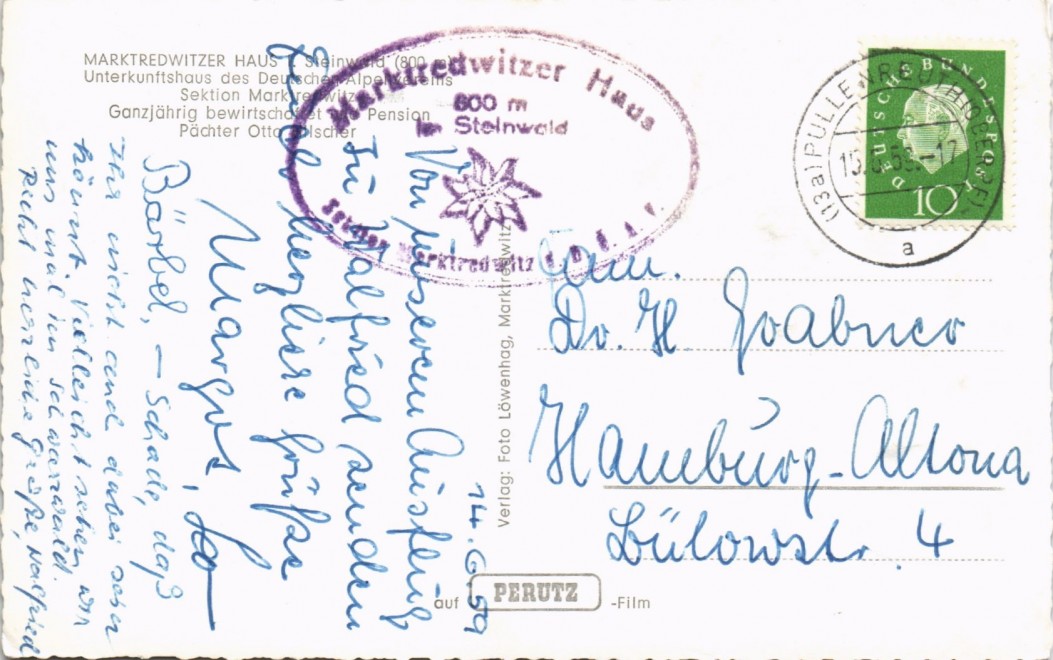 MARKTREDWITZER HAUS Steinwald (800 m)
Unterkunftshaus des Deutschen Alpenvereins
Sektion Marktredwitz
Ganzjährig bewirtschaftet Pension
Pächter Otto
Marktredwitzer Haus
800 m
im Steinwald
Sektion Marktredwitz d. D. A. V.
DEUTSCHE BUNDESPOST
10
(13a) PULLENREUTH (OBERPF)
15.6.59.-17
a
14.6.59
Von unserem Ausflug
zu Walfried senden
Euch herzliche Grüße
Margot,
Bärbel, – Schade, daß
Ihr nicht auch dabei sein
könnt. Vielleicht sehen wir
uns mal im Schwarzwald.
Recht herzliche Grüße, Walfried
Verlag: Foto Löwenhag, Marktredwitz
Fam.
Dr. H.
Hamburg-Altona
Bülowstr. 4
auf PERUTZ -Film